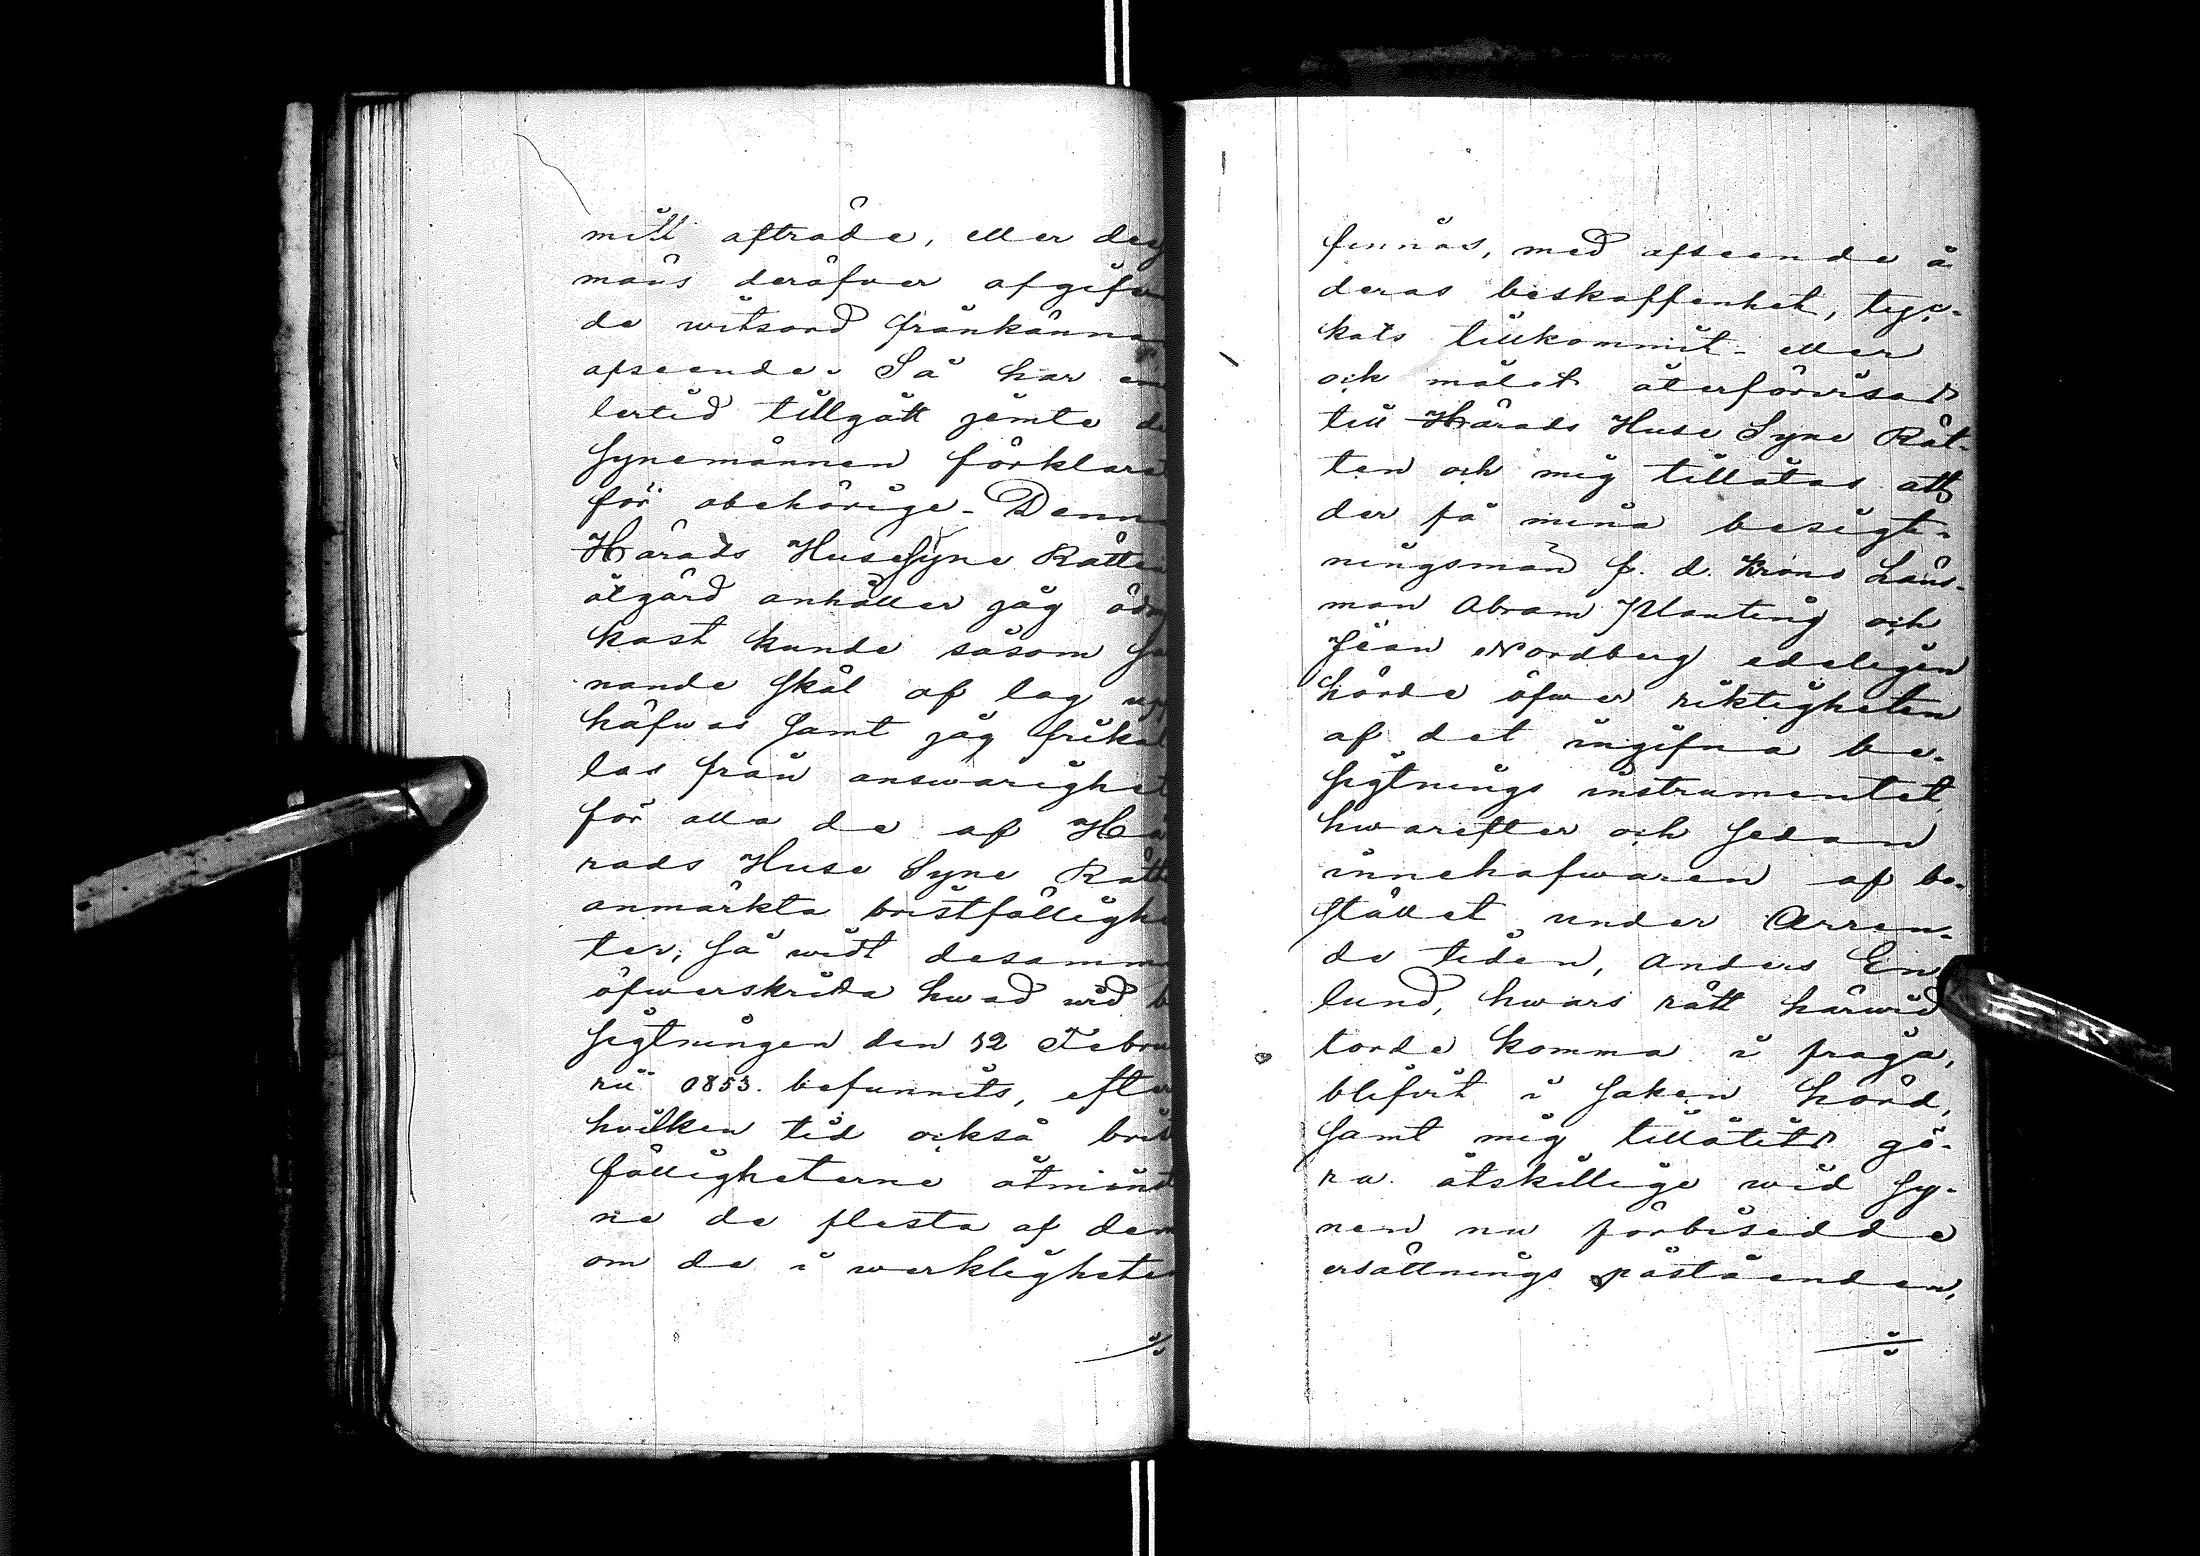 mitt afträde, eller des
mäns deröfver afgifv
de witsord frånkänna
afseende. Så har em
lertid tillgått jemte d
Synemännen förklara
för obehörige. Denn
Härads HuseSyne Rätte
åtgärd anhåller jag ödm
kast kunde såsom Ga
nande Skäl af lag upp
häfwas Samt jag frikal
las från answarighet
för alla de af Hä
rads Huse Syne Rätte
anmärkta bristfälligh
ter, Så widt desamm
öfwerskrida hwad wid b
Sigtningen den 12 Febru
rii 1853. befunnits, efter
hvilken tid också bris
fälligheterne åtminst
ne de flesta af dem
om de i werkligheten
finnas, med afseende å
deras beskaffenhet, tyc-
kats tillkommit. eller
ock målet återförvisas
till Härads Huse Syne Rät-
ten och mig tillåtas att
der få mina besigt-
ningsmän f. d. Krono Läns-
man Abram Planting och
Jean Nordberg edeligen
hörde öfwer riktigheten
af det ingifna be-
Sigtnings instrumentet,
hwarefter och Sedan
innehafwaren af bo-
Stället under Arren-
de tiden, Anders En
lund, hwars rätt härwid
torde komma i fråga,
blifvit i Saken hörd,
Samt mig tillåtits gö-
ra åtskillige wid Sy-
nen nu förbisedde
ersättnings påståenden,